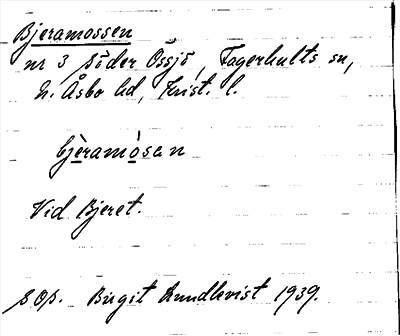 Bjeramossen
nr 3 Söder Össjö, Fagerhults sn,
N. Åsbo hd, Krist. l.
bjèramòsen
Vid Bjeret.
s op. Birgit Rundkvist 1939.